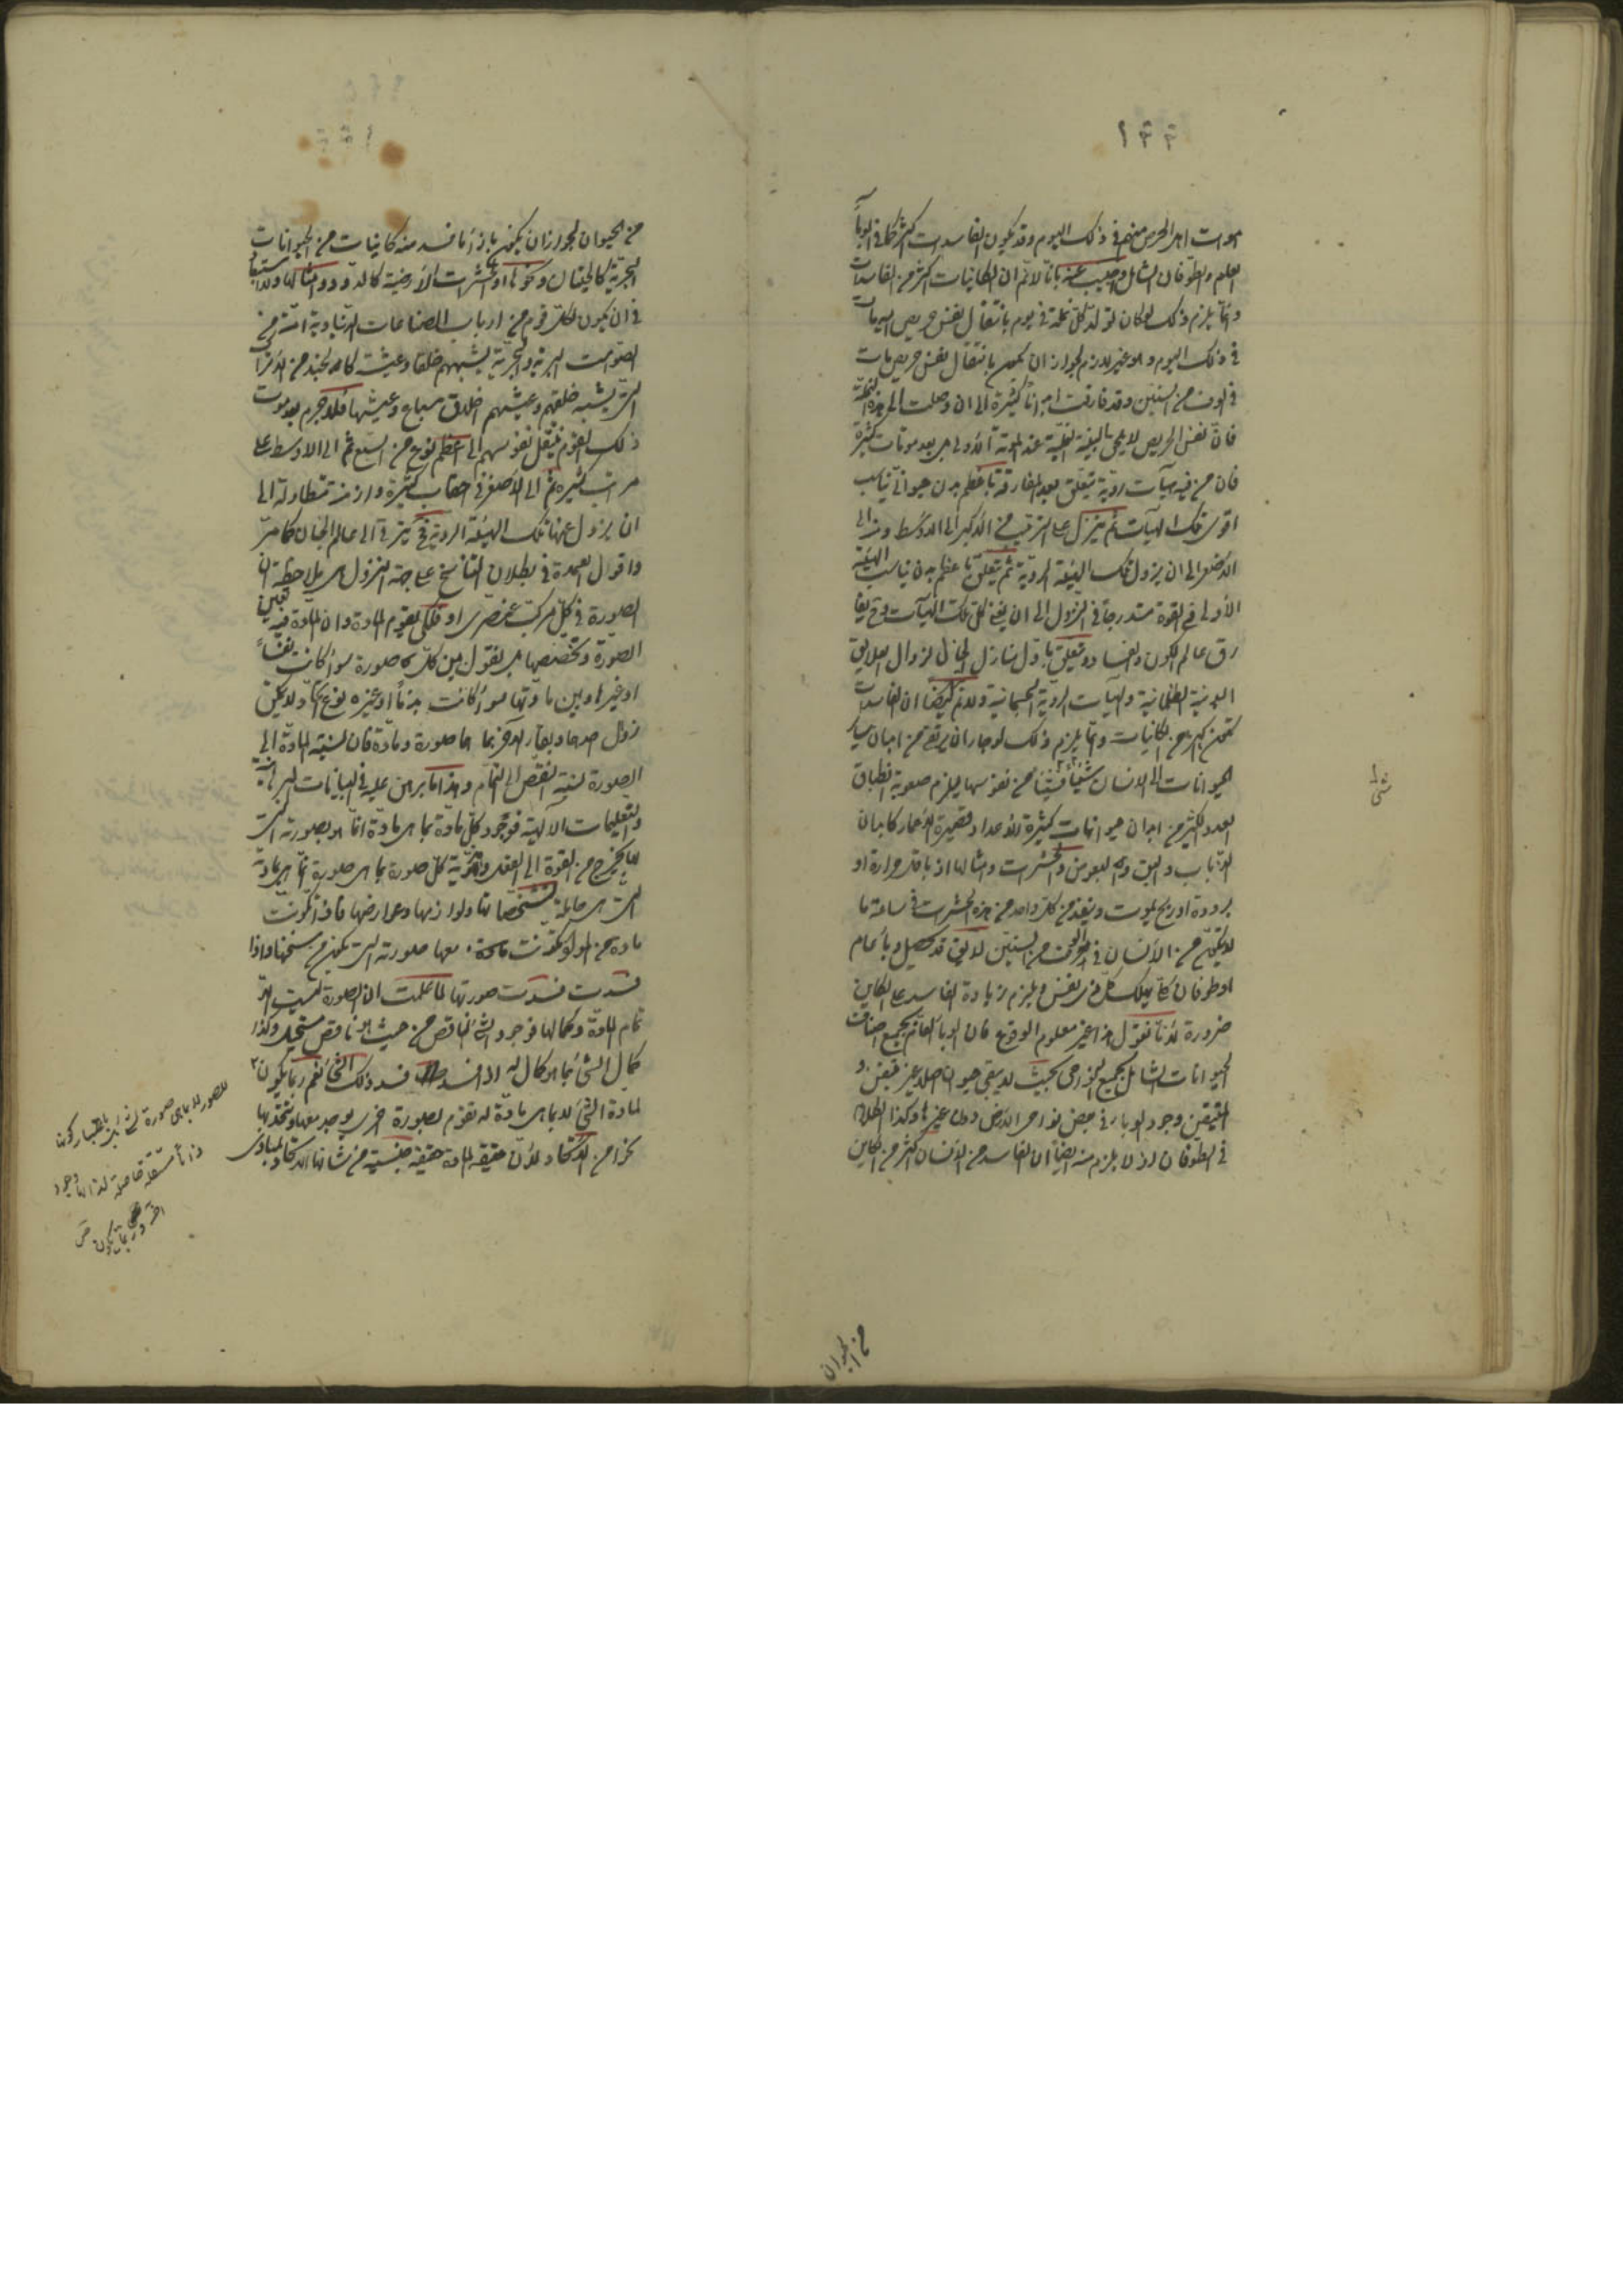 ١٣٣
موت اهل الحرص منهم في ذلك اليوم وقد يكون الفاسدات اكثر كما في الوباء
العام والطوفان الشامل واجيب عنه بانا لا نم ان الكائنات اكثر من الفاسدات
وانما يلزم ذلك لو كان تولد كل نملة في يوم بانتقال نفس حريص اليه مات
في ذلك اليوم وهو غير لازم لجواز ان يكون بانتقال نفس حريص مات
في الوف من السنين وقد فارقت ابدانا كثيرة الى ان وصلت الى هذه النملة
فان نفس الحريص لا يلحق بالبنية النملية عند الموتة الاولى بل بعد موتات كثيرة
فان من فيه هيآت ردية يتعلق بعد المفارقة باعظم بدن حيواني يناسب
اقوى تلك الهيآت ثم ينزل على الترتيب من الاكبر الى الاوسط ومنه الى
الاصغر الى ان يزول تلك الهيئة الردية ثم يتعلق باعظم بدن يناسب الهيئة
الاولى في القوة متدرجا في النزول الى ان يفنى كل تلك الهيآت وح يفارق
عالم الكون والفساد ويتعلق باول منازل الجنان لزوال العلايق
البدنية الظلمانية والهيآت الردية الجسمانية ولا نم ايضا ان الفاسدات
تكون اكثر من الكائنات وانما يلزم ذلك لو جاز ان يرتقي من ابدان ساير
الحيوانات الى الانسان شيئا فشيئا من نفوسها فيلزم صعوبة انطباق
العدد الكثير من ابدان حيوانات كثيرة الاعداد قصيرة الاعمار كابدان
الذباب والبق والبعوض والحشرات وامثالها اذ باقل حرارة او
برودة او ريح يموت وينعدم من كل واحد من هذه الحشرات في ساعة ما
لا يتكون من الانسان في الوف من السنين لا يق قد يحصل وباء عام
او طوفان كلي يهلك كل ذي نفس ويلزم زيادة الفاسد على الكاين
ضرورة لانا نقول هذا غير معلوم الوقوع فان الوباء العام لجميع اصناف
الحيوانات الشامل لجميع النواحي بحيث لا يبقى حيوان اصلا غير متيقن و
المتيقن وجود الوباء في بعض نواحي الارض دون غيرها وكذا الكلام
في الطوفان اذ لا يلزم منه ايضا ان الفاسد من الانسان اكثر من الكاين
من الحيوان
من الحيوان لجواز ان يكون بازاء ما فسد منه كائنات من الحيوانات
البحرية كالحيتان ونحوها او الحشرات الارضية كالدود وامثالها ولا استبعاد
في ان يكون لكل قوم من ارباب الصناعات الدنياوية امة من
الصوامت البرية والبحرية يشبههم خلقا وعيشة كامة الجند من الاتراك
التي يشبه خلقهم وعيشهم اخلاق سباع وعيشها فلا جرم بعد موت
ذلك القوم ينتقل نفوسهم الى اعظم نوع من السبع ثم الى الاوسط على
مراتب كثيرة ثم الى الاصغر في احقاب كثيرة وازمنة متطاولة الى
ان يزول عنها تلك الهيئة الردية فح يترقى الى عالم الجنان كما مر
واقول العمدة في بطلان التناسخ على جهة النزول هي ملاحظة ان
الصورة في كل مركب عنصري او فلكي يقوم المادة وان المادة فيه تعين
الصورة وتخصصها بل نقول بين كل صورة سواء كانت نفسا
او غيرها وبين مادتها سواء كانت بدنا او غيره نوع اتحاد لا يمكن
زوال احدهما وبقاء الآخر بما هما صورة ومادة فان نسبة المادة الى
الصورة نسبة النقص الى التمام وهذا مما برهن عليه في البيانات البرهانية
والتعليمات الالهية فوجود كل مادة بما هي مادة انما هو بصورته التي
بها يخرج من القوة الى الفعل وهوية كل صورة بما هي صورة انما هي بمادته
التي هي حاملة لتشخصاتها ولوازمها وعوارضها فاذا تكونت
مادة من المواد تكونت معها صورته التي تكون من سنخها واذا
فسدت فسدت صورتها لما علمت ان الصورة ليست الا
تمام المادة وكمالها فوجود الشيء الناقص من حيث هو ناقص مستحيل وكذا
كمال الشيء بما هو كمال له اذا فسد فسد ذلك الشيء نعم ربما يكون
لمادة الشيء لا بما هي مادة له تقوم بصورة اخرى يوجد معها ويتحد بها
نحوا من الاتحاد لان حقيقة المادة حقيقة جنسية من شانها الاتحاد بمبادي
للصور لا بما هي صورة لشيء بل باعتبار كونها
ذاتا مستقلة فاصلة لذاتها وجود
آخر وربما يكون